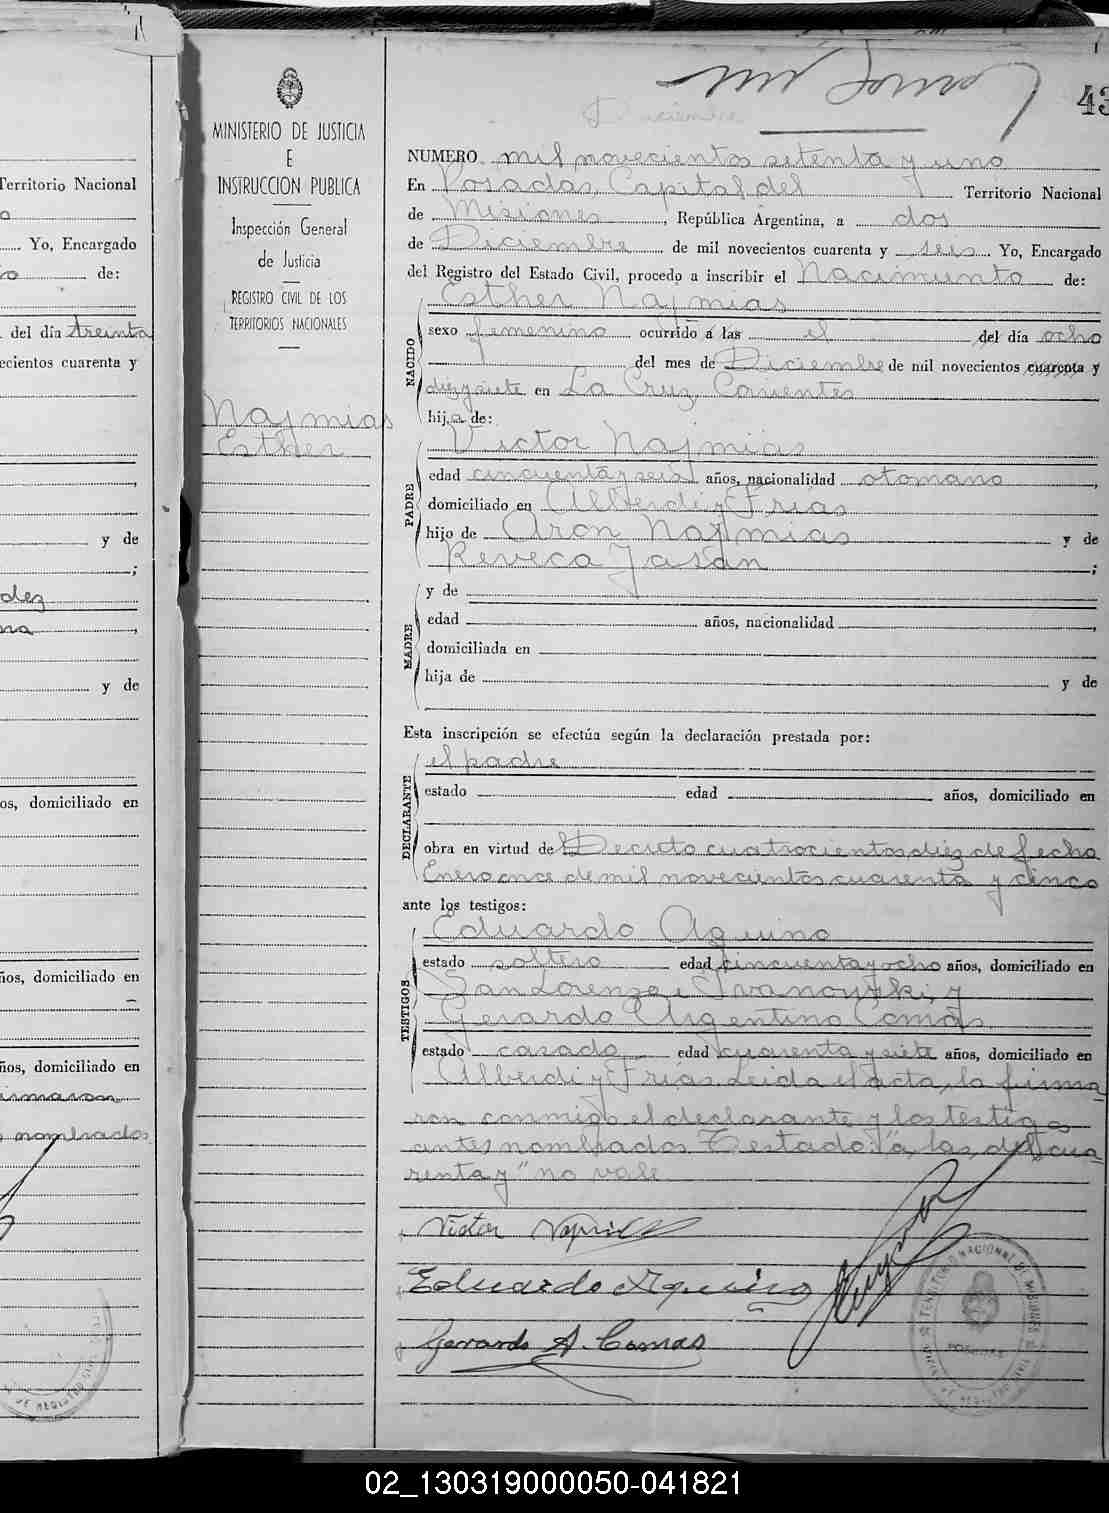 43
MINISTERIO DE JUSTICIA
E
INSTRUCCION PUBLICA
Inspección General
de Justicia
REGISTRO CIVIL DE LOS
TERRITORIOS NACIONALES
Najmias
Esther
Diciembre
NUMERO mil novecientos setenta y uno
En Posadas, Capital del Territorio Nacional
de Misiones, República Argentina, a dos
de Diciembre de mil novecientos cuarenta y seis Yo, Encargado
del Registro del Estado Civil, procedo a inscribir el Nacimiento de:
NACIDO
Esther Najmias
sexo femenino ocurrido a las el del día ocho
del mes de Diciembre de mil novecientos cuarenta y
diezysiete en La Cruz, Corrientes
hija de:
PADRE
Victor Najmias
edad cincuenta y seis años, nacionalidad otomano,
domiciliado en Alberdi y Frias
hijo de Aron Najmias y de
Reveca Jasán;
MADRE
y de
edad años, nacionalidad,
domiciliada en
hija de y de
Esta inscripción se efectúa según la declaración prestada por:
DECLARANTE
el padre
estado edad años, domiciliado en
obra en virtud de Decreto cuatrocientos diez de fecha
Enero once de mil novecientos cuarenta y cinco
ante los testigos:
TESTIGOS
Eduardo Aquino
estado soltero edad cincuenta y ocho años, domiciliado en
San Lorenzo e Ivanoyski, y
Gerardo Argentino Comas
estado casado edad cuarenta y siete años, domiciliado en
Alberdi y Frias. Leida el acta, la firma-
ron conmigo el declarante y los testigos
antes nombrados. Testado: "a, las, del, cua-
renta y" no vale
Victor
Eduardo Aquino
Gerardo A. Comas
TERRITORIO NACIONAL DE MISIONES
POSADAS
Territorio Nacional
Yo, Encargado
de:
del día treinta
ecientos cuarenta y
y de
;
dez
na,
y de
os, domiciliado en
ños, domiciliado en
ños, domiciliado en
irmaron
nombrados
DE REGISTRO CIVIL
02_130319000050-041821